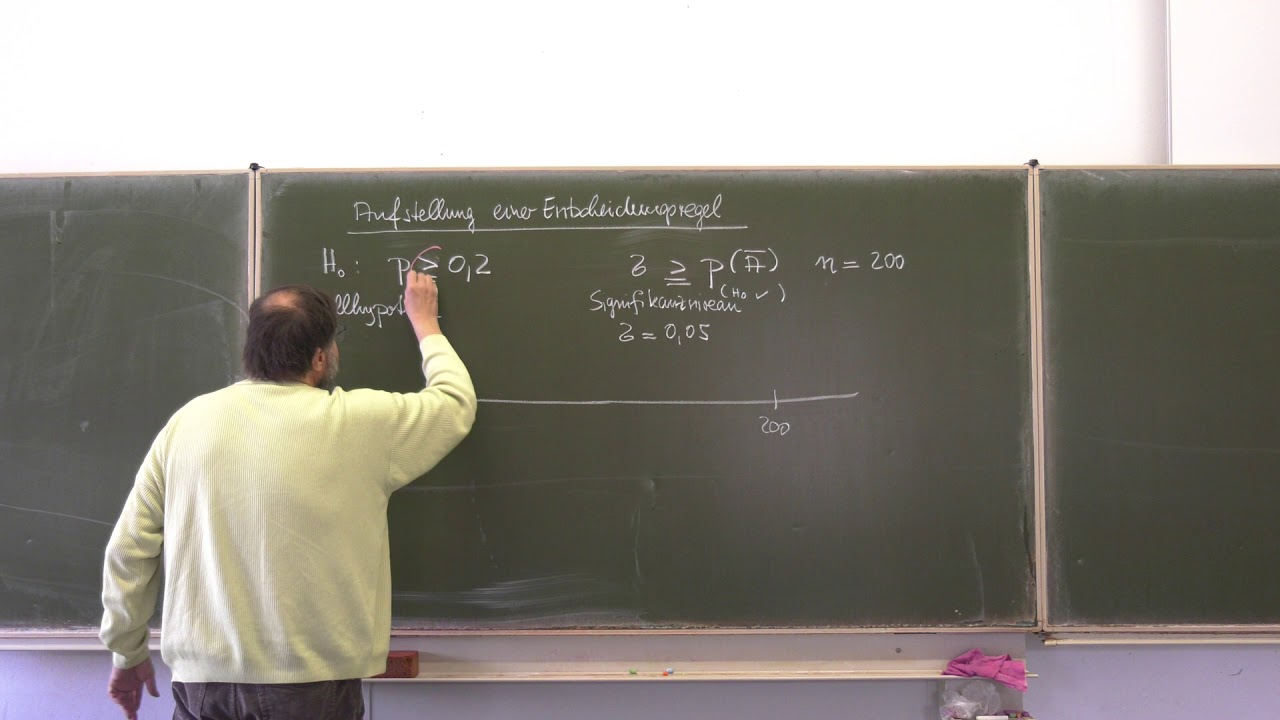 Aufstellung einer Entscheidungsregel
H₀: p ≥ 0,2
≥ P(H₀ ✓) (A̅) n = 200
llhypot
Signifikanzniveau
= 0,05
200